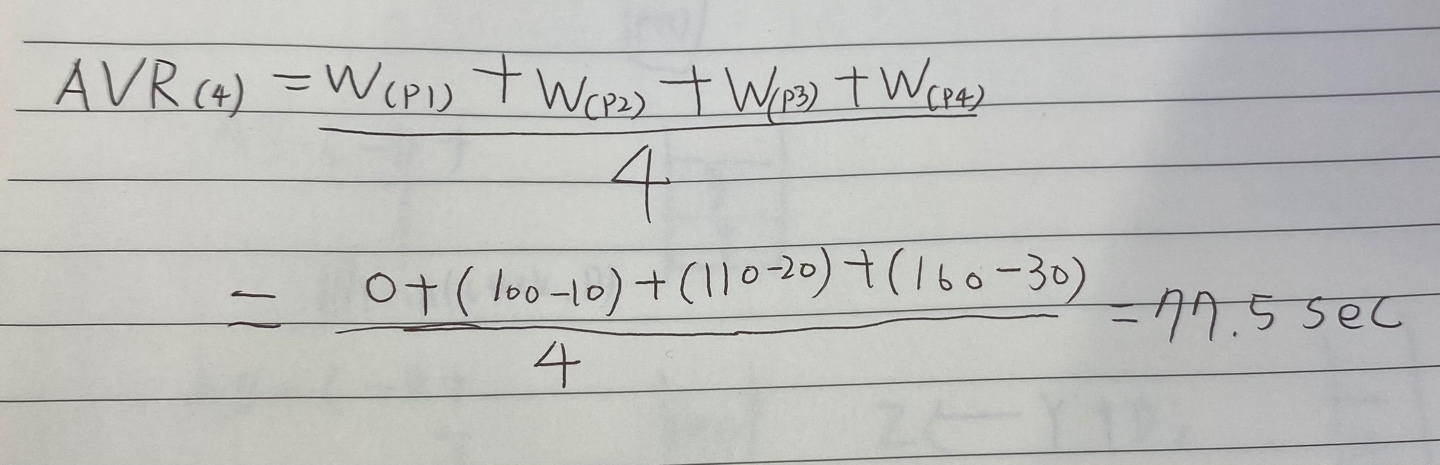 AVR(4) = W(P1) + W(P2) + W(P3) + W(P4)
4
= 0+(100-10)+(110-20)+(160-30) = 77.5 sec
4